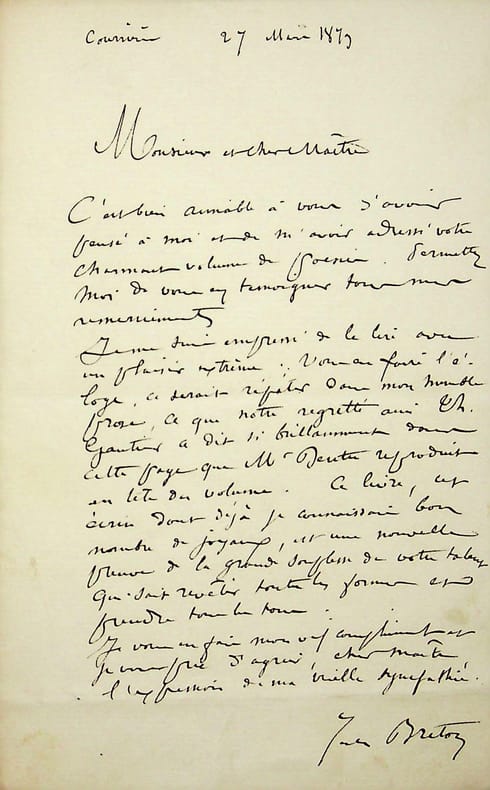 Courrières 27 Mai 1879
Monsieur et cher Maître
C'est bien aimable à vous d'avoir
pensé à moi et de m'avoir adressé votre
charmant volume de poésie. Permettez
moi de vous en témoigner tous mes
remerciements
Je me suis empressé de le lire avec
un plaisir extrême. Vous en faire l'é-
loge, ce serait répéter dans mon humble
prose, ce que notre regretté ami Th.
Gautier a dit si brillamment dans
cette page que Mr Dentu reproduit
en tête du volume. Ce livre, cet
écrin dont déjà je connaissais bon
nombre de joyaux, est une nouvelle
preuve de la grande souplesse de votre talent
qui sait revêtir toutes les formes et
prendre tous les tons.
Je vous en fais mon vif compliment et
je vous prie d'agréer, cher Maître,
l'expression de ma vieille sympathie.
Jules Breton